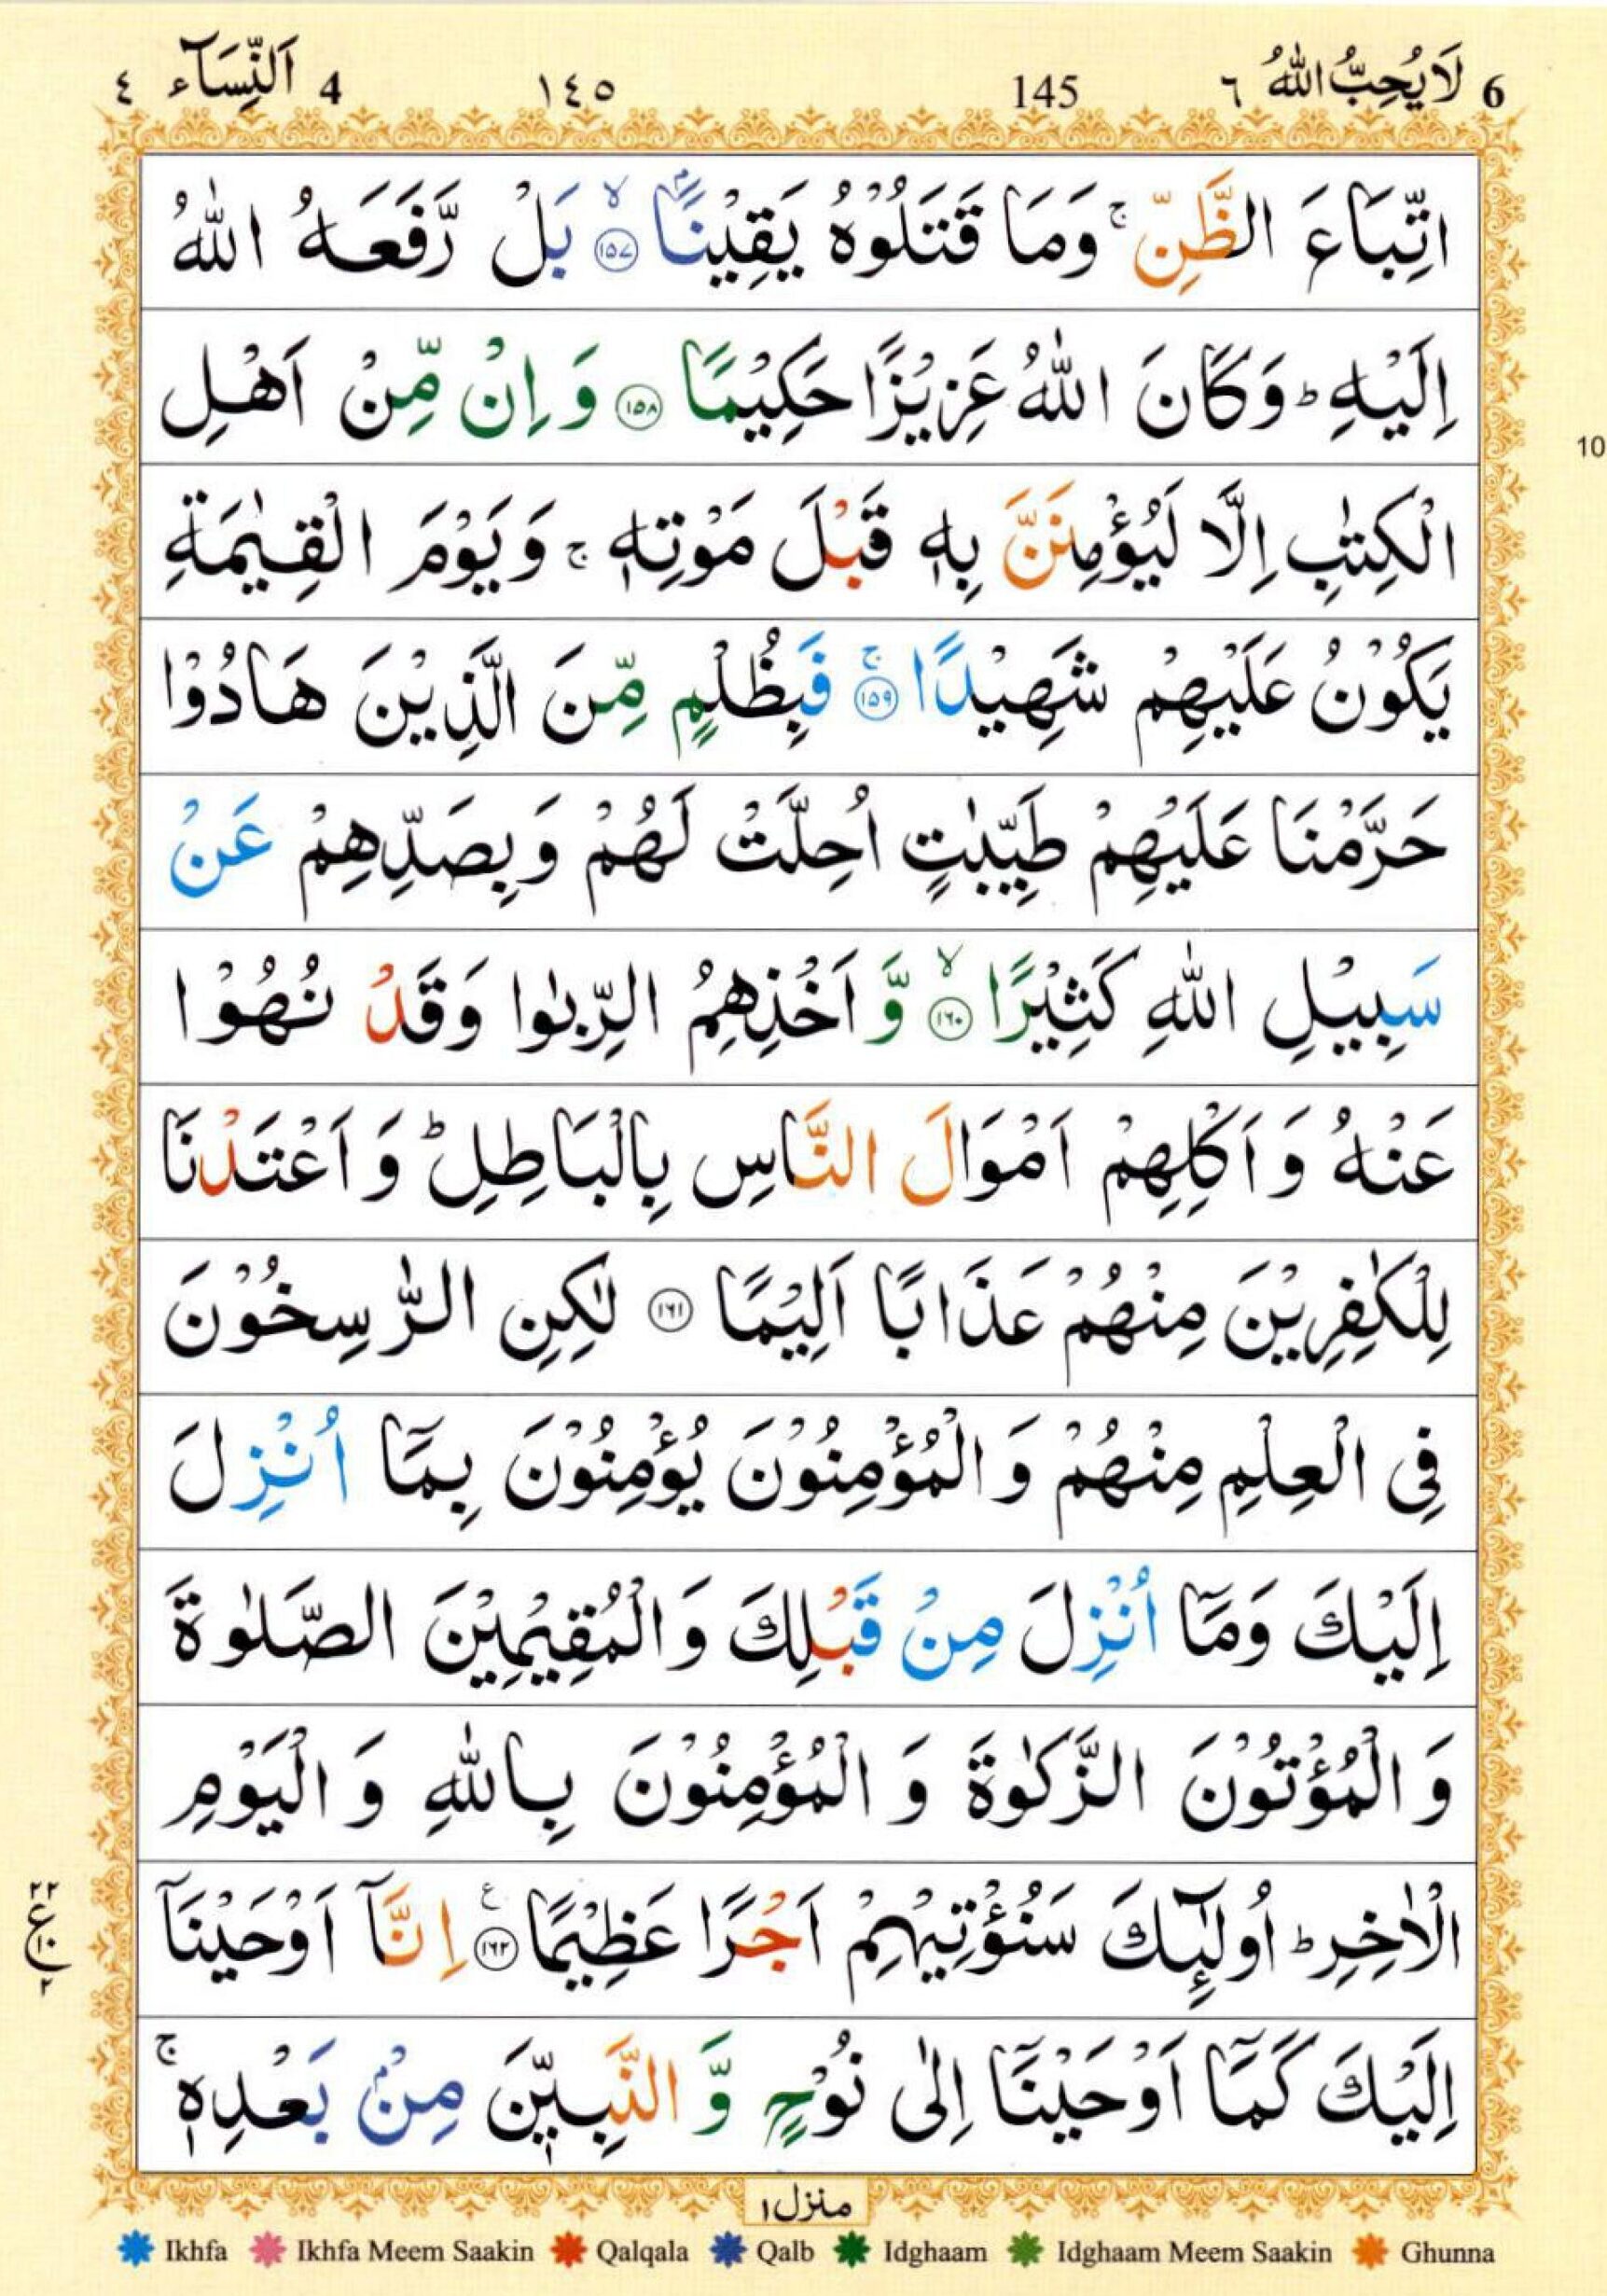 6 لَا يُحِبُّ اللّٰهُ ٦ 145 ١٤٥ 4 اَلنِّسَآء ٤
اتِّبَاعَ الظَّنِّ ۚ وَمَا قَتَلُوْهُ يَقِيْنًۢا ۙ ﴿١٥٧﴾ بَلْ رَّفَعَهُ اللّٰهُ
اِلَيْهِ ؕ وَكَانَ اللّٰهُ عَزِيْزًا حَكِيْمًا ﴿١٥٨﴾ وَ اِنْ مِّنْ اَهْلِ
الْكِتٰبِ اِلَّا لَيُؤْمِنَنَّ بِهٖ قَبْلَ مَوْتِهٖ ۚ وَيَوْمَ الْقِيٰمَةِ
يَكُوْنُ عَلَيْهِمْ شَهِيْدًا ۚ ﴿١٥٩﴾ فَبِظُلْمٍ مِّنَ الَّذِيْنَ هَادُوْا
حَرَّمْنَا عَلَيْهِمْ طَيِّبٰتٍ اُحِلَّتْ لَهُمْ وَبِصَدِّهِمْ عَنْ
سَبِيْلِ اللّٰهِ كَثِيْرًا ۙ ﴿١٦٠﴾ وَّ اَخْذِهِمُ الرِّبٰوا وَقَدْ نُهُوْا
عَنْهُ وَ اَكْلِهِمْ اَمْوَالَ النَّاسِ بِالْبَاطِلِ ؕ وَ اَعْتَدْنَا
لِلْكٰفِرِيْنَ مِنْهُمْ عَذَابًا اَلِيْمًا ﴿١٦١﴾ لٰكِنِ الرّٰسِخُوْنَ
فِى الْعِلْمِ مِنْهُمْ وَ الْمُؤْمِنُوْنَ يُؤْمِنُوْنَ بِمَآ اُنْزِلَ
اِلَيْكَ وَمَآ اُنْزِلَ مِنْ قَبْلِكَ وَ الْمُقِيْمِيْنَ الصَّلٰوةَ
وَ الْمُؤْتُوْنَ الزَّكٰوةَ وَ الْمُؤْمِنُوْنَ بِاللّٰهِ وَ الْيَوْمِ
الْاٰخِرِ ؕ اُولٰٓئِكَ سَنُؤْتِيْهِمْ اَجْرًا عَظِيْمًا ﴿١٦٢﴾ ع اِنَّآ اَوْحَيْنَآ
اِلَيْكَ كَمَآ اَوْحَيْنَآ اِلٰى نُوْحٍ وَّ النَّبِيّٖنَ مِنْۢ بَعْدِهٖ ۚ
10
٢٢
ع ١٠
٢
منزل ١
Ikhfa Ikhfa Meem Saakin Qalqala Qalb Idghaam Idghaam Meem Saakin Ghunna